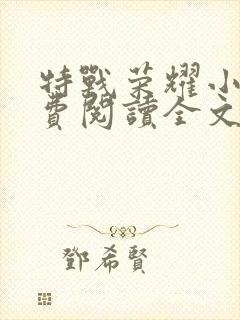 特戰荣耀小
費閱讀全文
鄧希賢